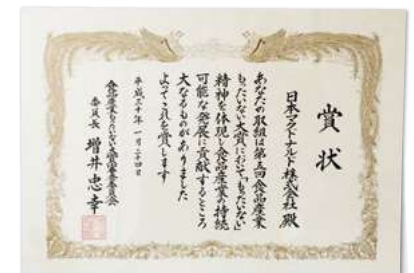 賞状
日本マクドナルド株式会社 殿
あなたの取組は第五回食品産業
もったいない大賞において「もったいない」
精神を体現し食品産業の持続
可能な発展に貢献するところ
大なるものがありました
よってこれを賞します
平成三十年一月二十四日
食品産業もったいない大賞審査委員会
委員長 増井忠幸